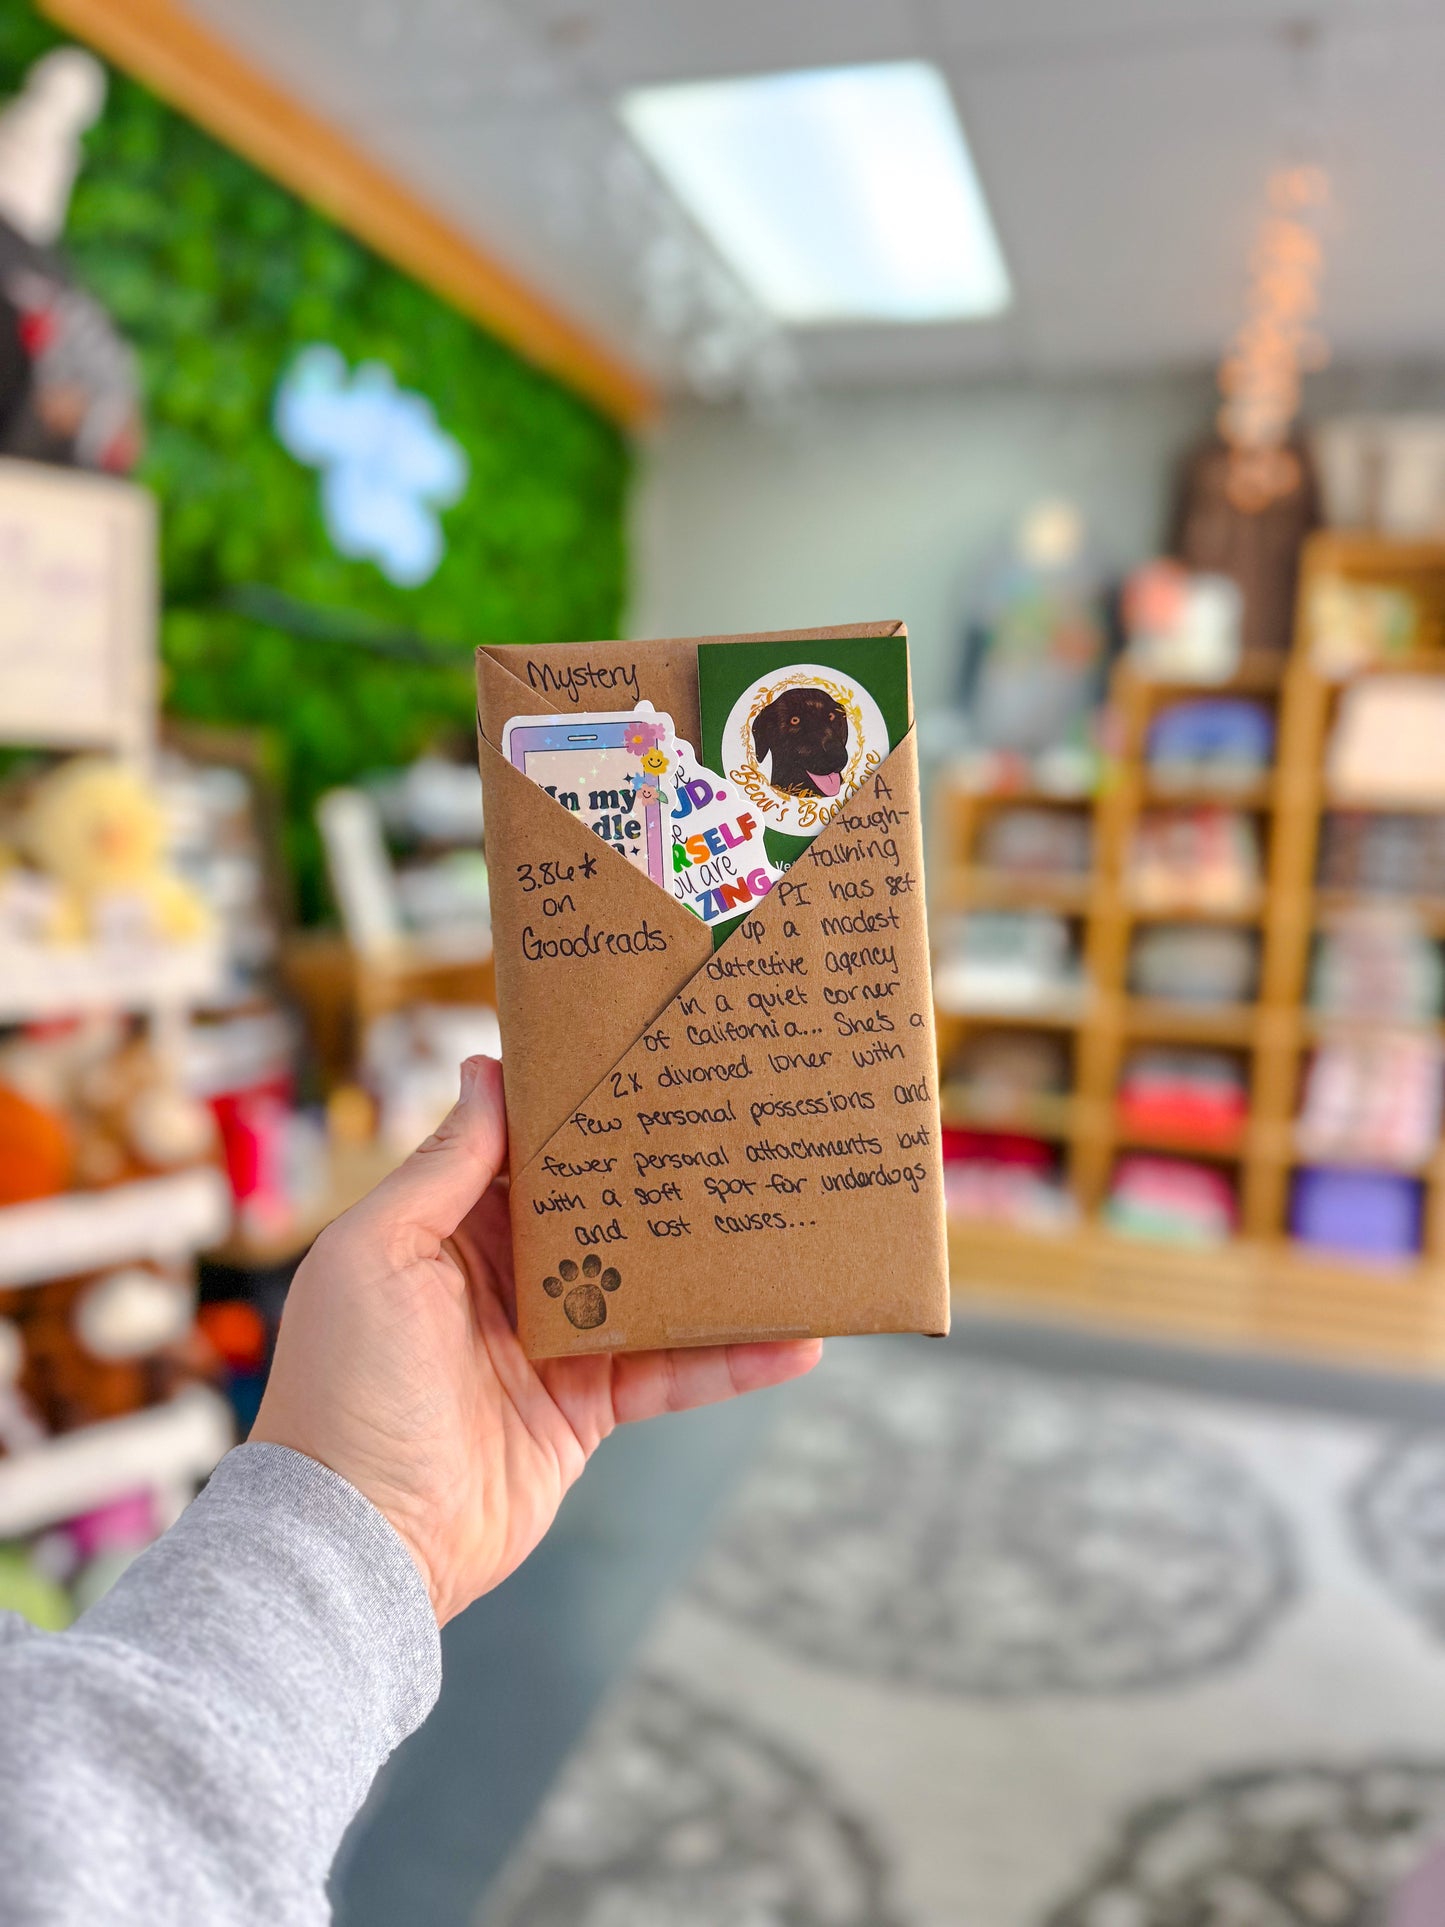 Mystery
In my
dle
UD.
RSELF
you are
ZING
Bear's Bookstore
3.86*
on
Goodreads.
A
tough-
talking
PI has set
up a modest
detective agency
in a quiet corner
of California... She's a
2x divorced loner with
few personal possessions and
fewer personal attachments but
with a soft spot for underdogs
and lost causes...